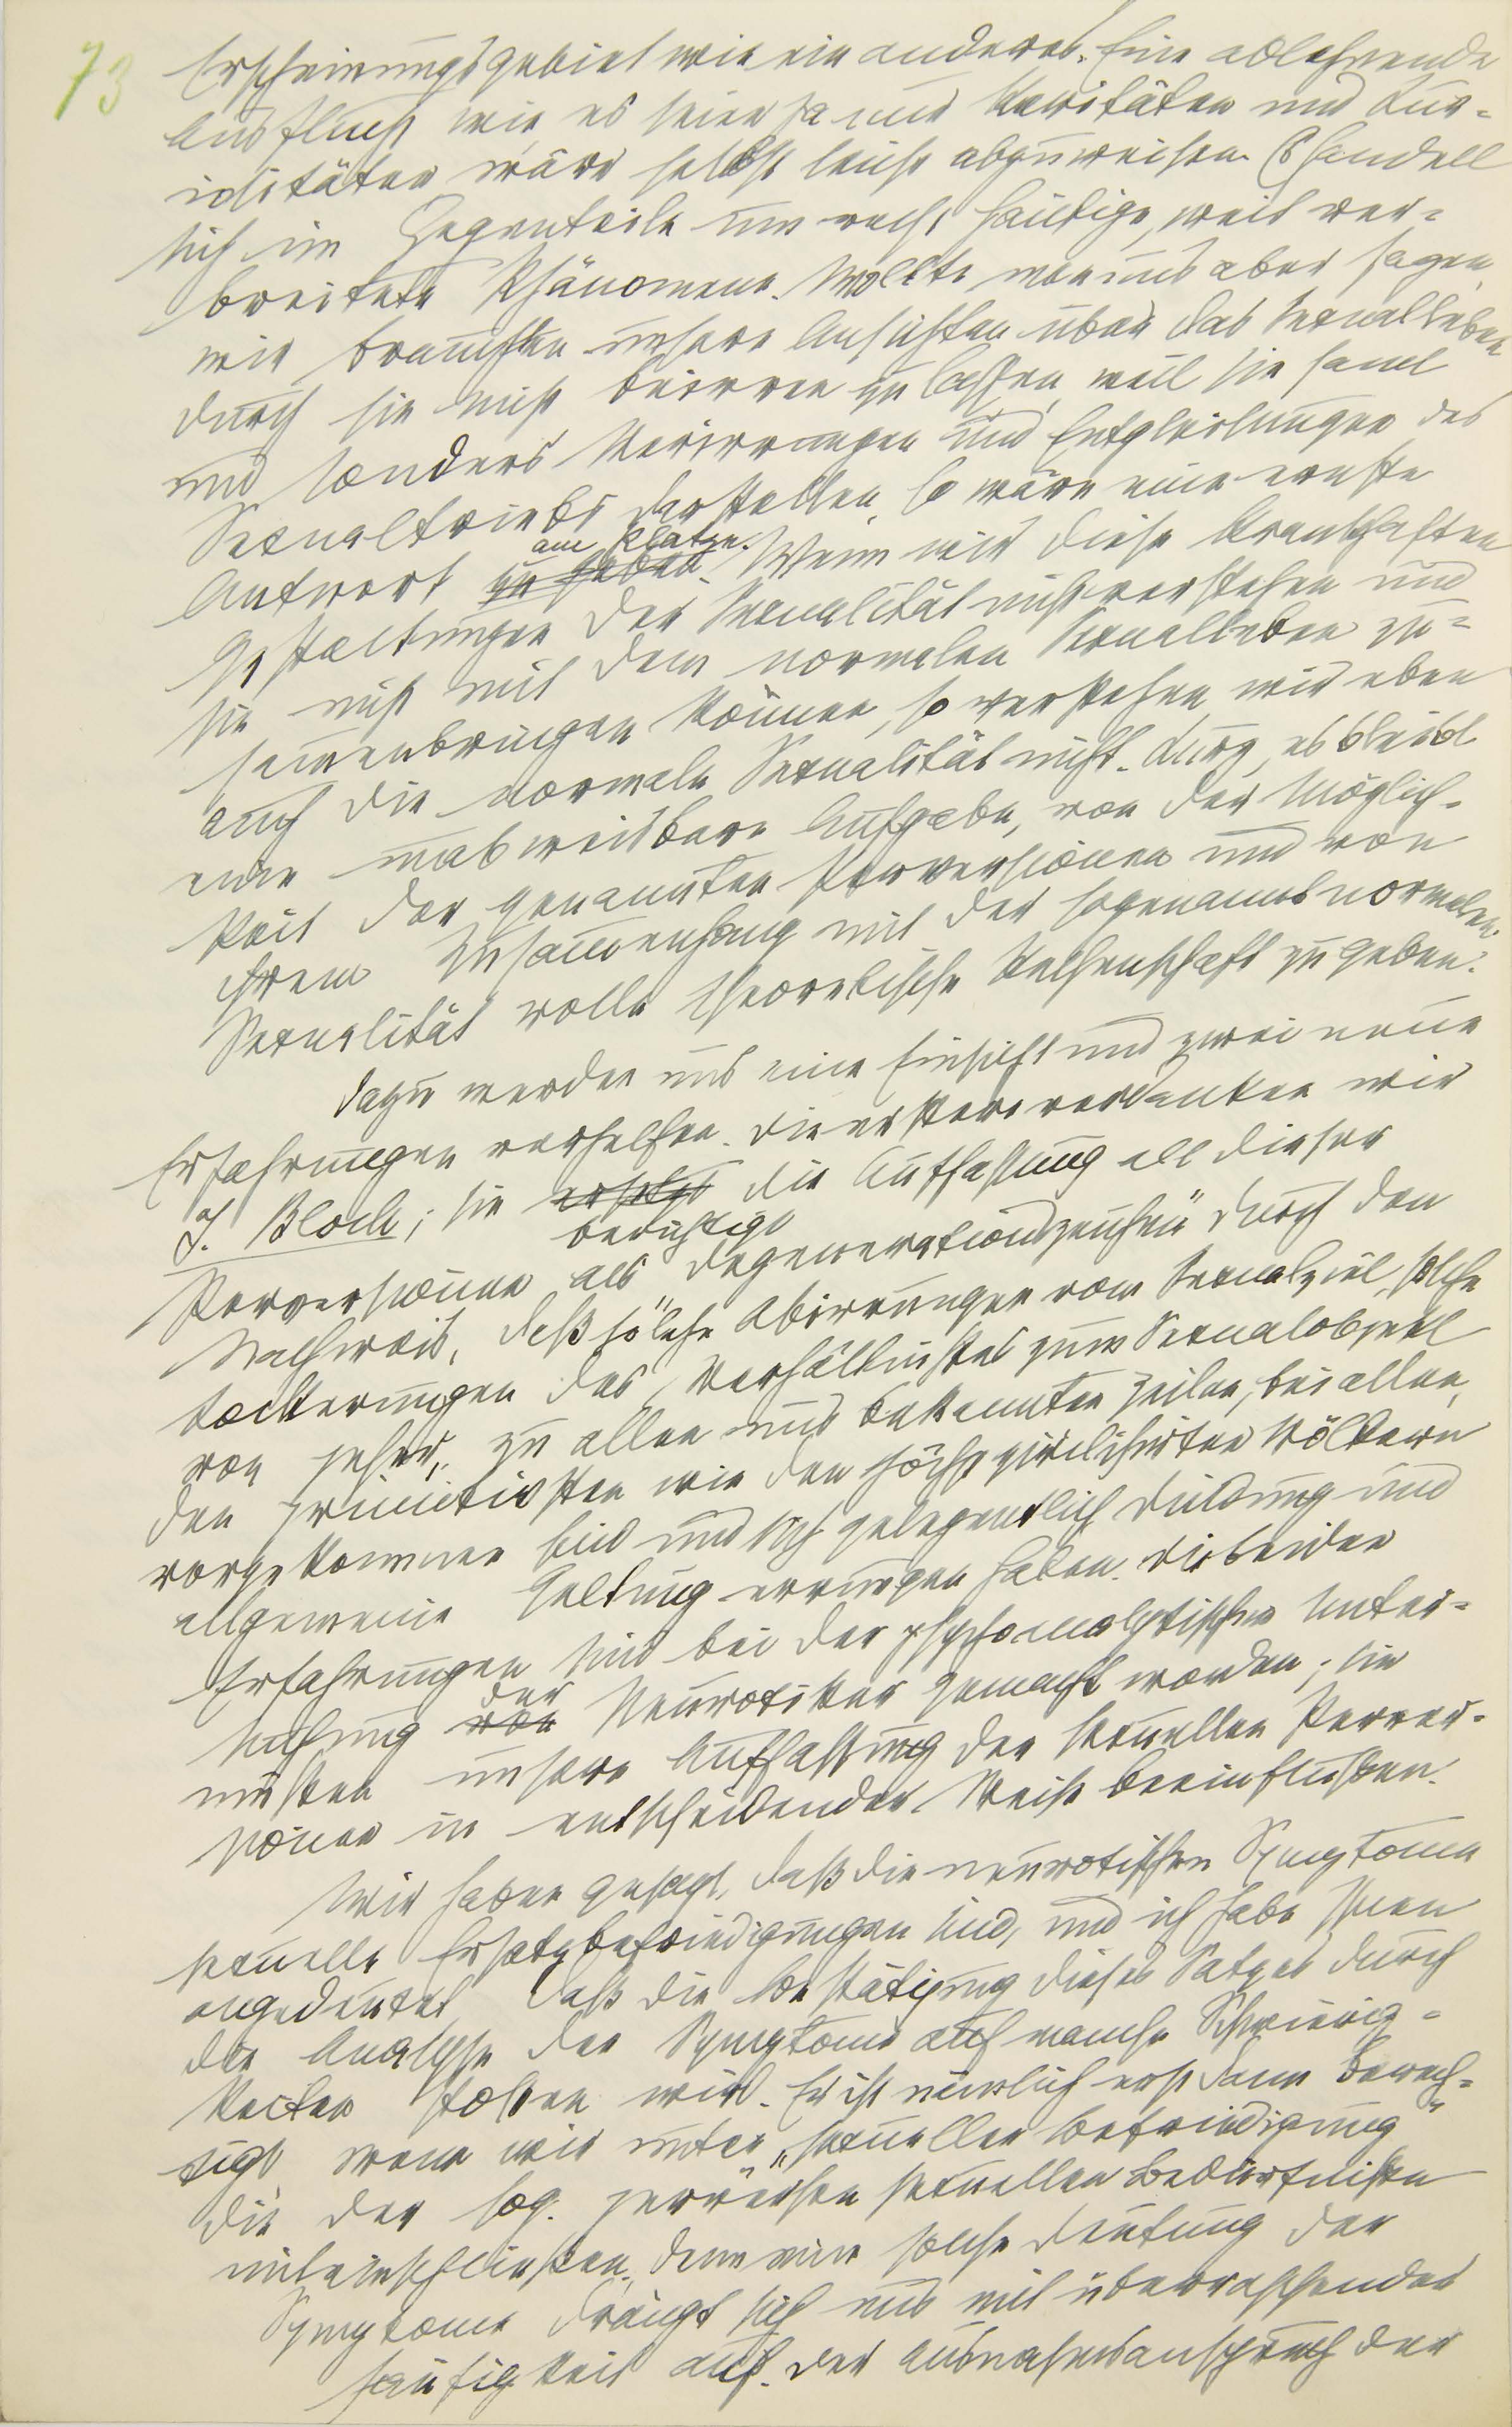 73
Erscheinungsgebiet wie ein anderes. Eine ablehnende
Ausflucht wie, es seien ja nur Raritäten und Kur-
iositäten wäre selbst leicht abzuweisen. Es handelt
sich im Gegenteile um recht häufige, weit ver-
breitete Phänomene. Wollte man uns aber sagen,
wir brauchten unsere Ansichten über das Sexualleben
durch sie nicht beirren zu lassen, weil sie samt
und sonders Verirrungen und Entgleisungen des
Sexualtriebs darstellen, so wäre eine ernste
am Platze.
Antwort zu geben. Wenn wir diese krankhaften
Gestaltungen der Sexualität nicht verstehen und
sie nicht mit dem normalen Sexualleben zu-
sammenbringen können, so verstehen wir eben
auch die normale Sexualität nicht. Kurz, es bleibt
eine unabweisbare Aufgabe, von der Möglich-
keit der genannten Perversionen und von
ihrem Zusammenhang mit der sogenannt normalen
Sexualität volle theoretische Rechenschaft zu geben.
Dazu werden uns eine Einsicht und zwei neue
Erfahrungen verhelfen. Die erstere verdanken wir
I. Bloch; sie ersetzt die Auffassung all dieser
berichtigt
Perversionen als „Degenerationszeichen“ durch den
Nachweis, daß solche Abirrungen vom Sexualziel, solche
Lockerungen des Verhältnisses zum Sexualobjekt
von jeher, zu allen uns bekannten Zeiten, bei allen,
den primitivsten wie den höchstzivilisirten Völkern
vorgekommen sind und sich gelegentlich Duldung und
allgemeine Geltung errungen haben. Die beiden
Erfahrungen sind bei der psychoanalytischen Unter-
der
suchung von Neurotiker gemacht worden; sie
müssen unsere Auffassung der sexuellen Perver-
sionen in entscheidender Weise beeinflussen.
Wir haben gesagt, daß die neurotischen Symptome
sexuelle Ersatzbefriedigungen sind, und ich habe Ihnen
angedeutet, daß die Bestätigung dieses Satzes durch
die Analyse der Symptome auf manche Schwierig-
keiten stoßen wird. Er ist nämlich erst dann berech-
tigt wenn wir unter „sexueller Befriedigung“
die der sog. perversen sexuellen Bedürfnisse
miteinschließen, denn eine solche Deutung der
Symptome drängt sich uns mit überraschender
Häufigkeit auf. Der Ausnahmsanspruch der